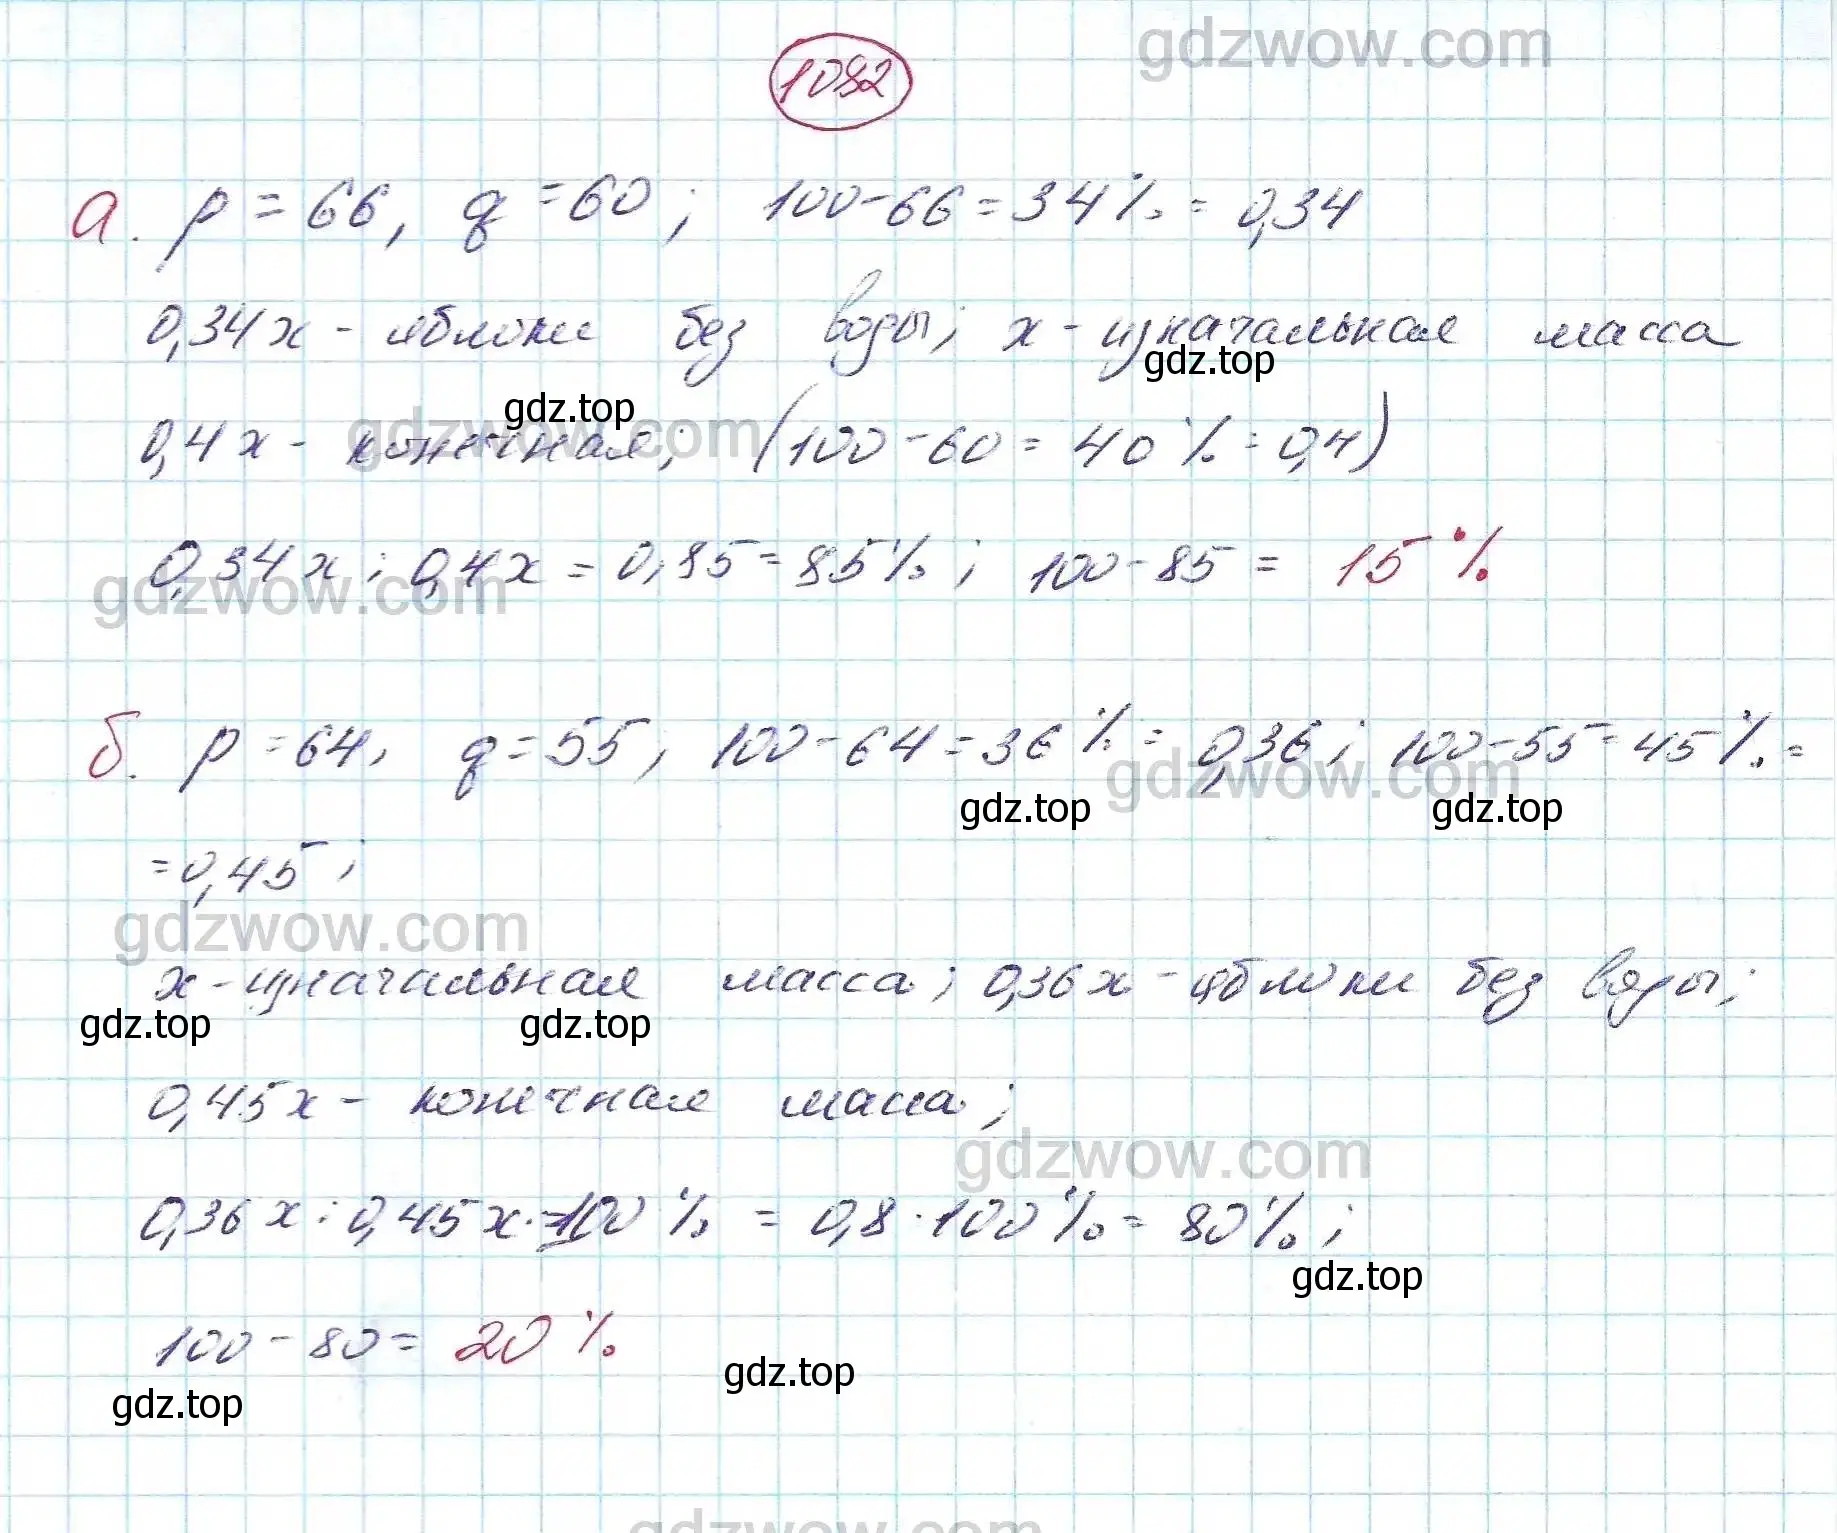 gdzwow.com
1092
а. p = 66, q = 60; 100-66 = 34% = 0,34
0,34x - яблоки без воды; x - изначальная масса
gdz.top
gdz.top
0,4x - конечная; (100-60 = 40% = 0,4)
gdzwow.com
0,34x : 0,4x = 0,85 = 85%; 100-85 = 15%
gdzwow.com
б. p = 64, q = 55; 100-64 = 36% = 0,36; 100-55 = 45% =
gdzwow.com
gdz.top
gdz.top
= 0,45;
gdzwow.com
x - изначальная масса; 0,36x - яблоки без воды;
gdz.top
gdz.top
0,45x - конечная масса;
gdzwow.com
0,36x : 0,45x · 100% = 0,8 · 100% = 80%;
gdz.top
100 - 80 = 20%
gdz.top
gdz.top
gdzwow.com